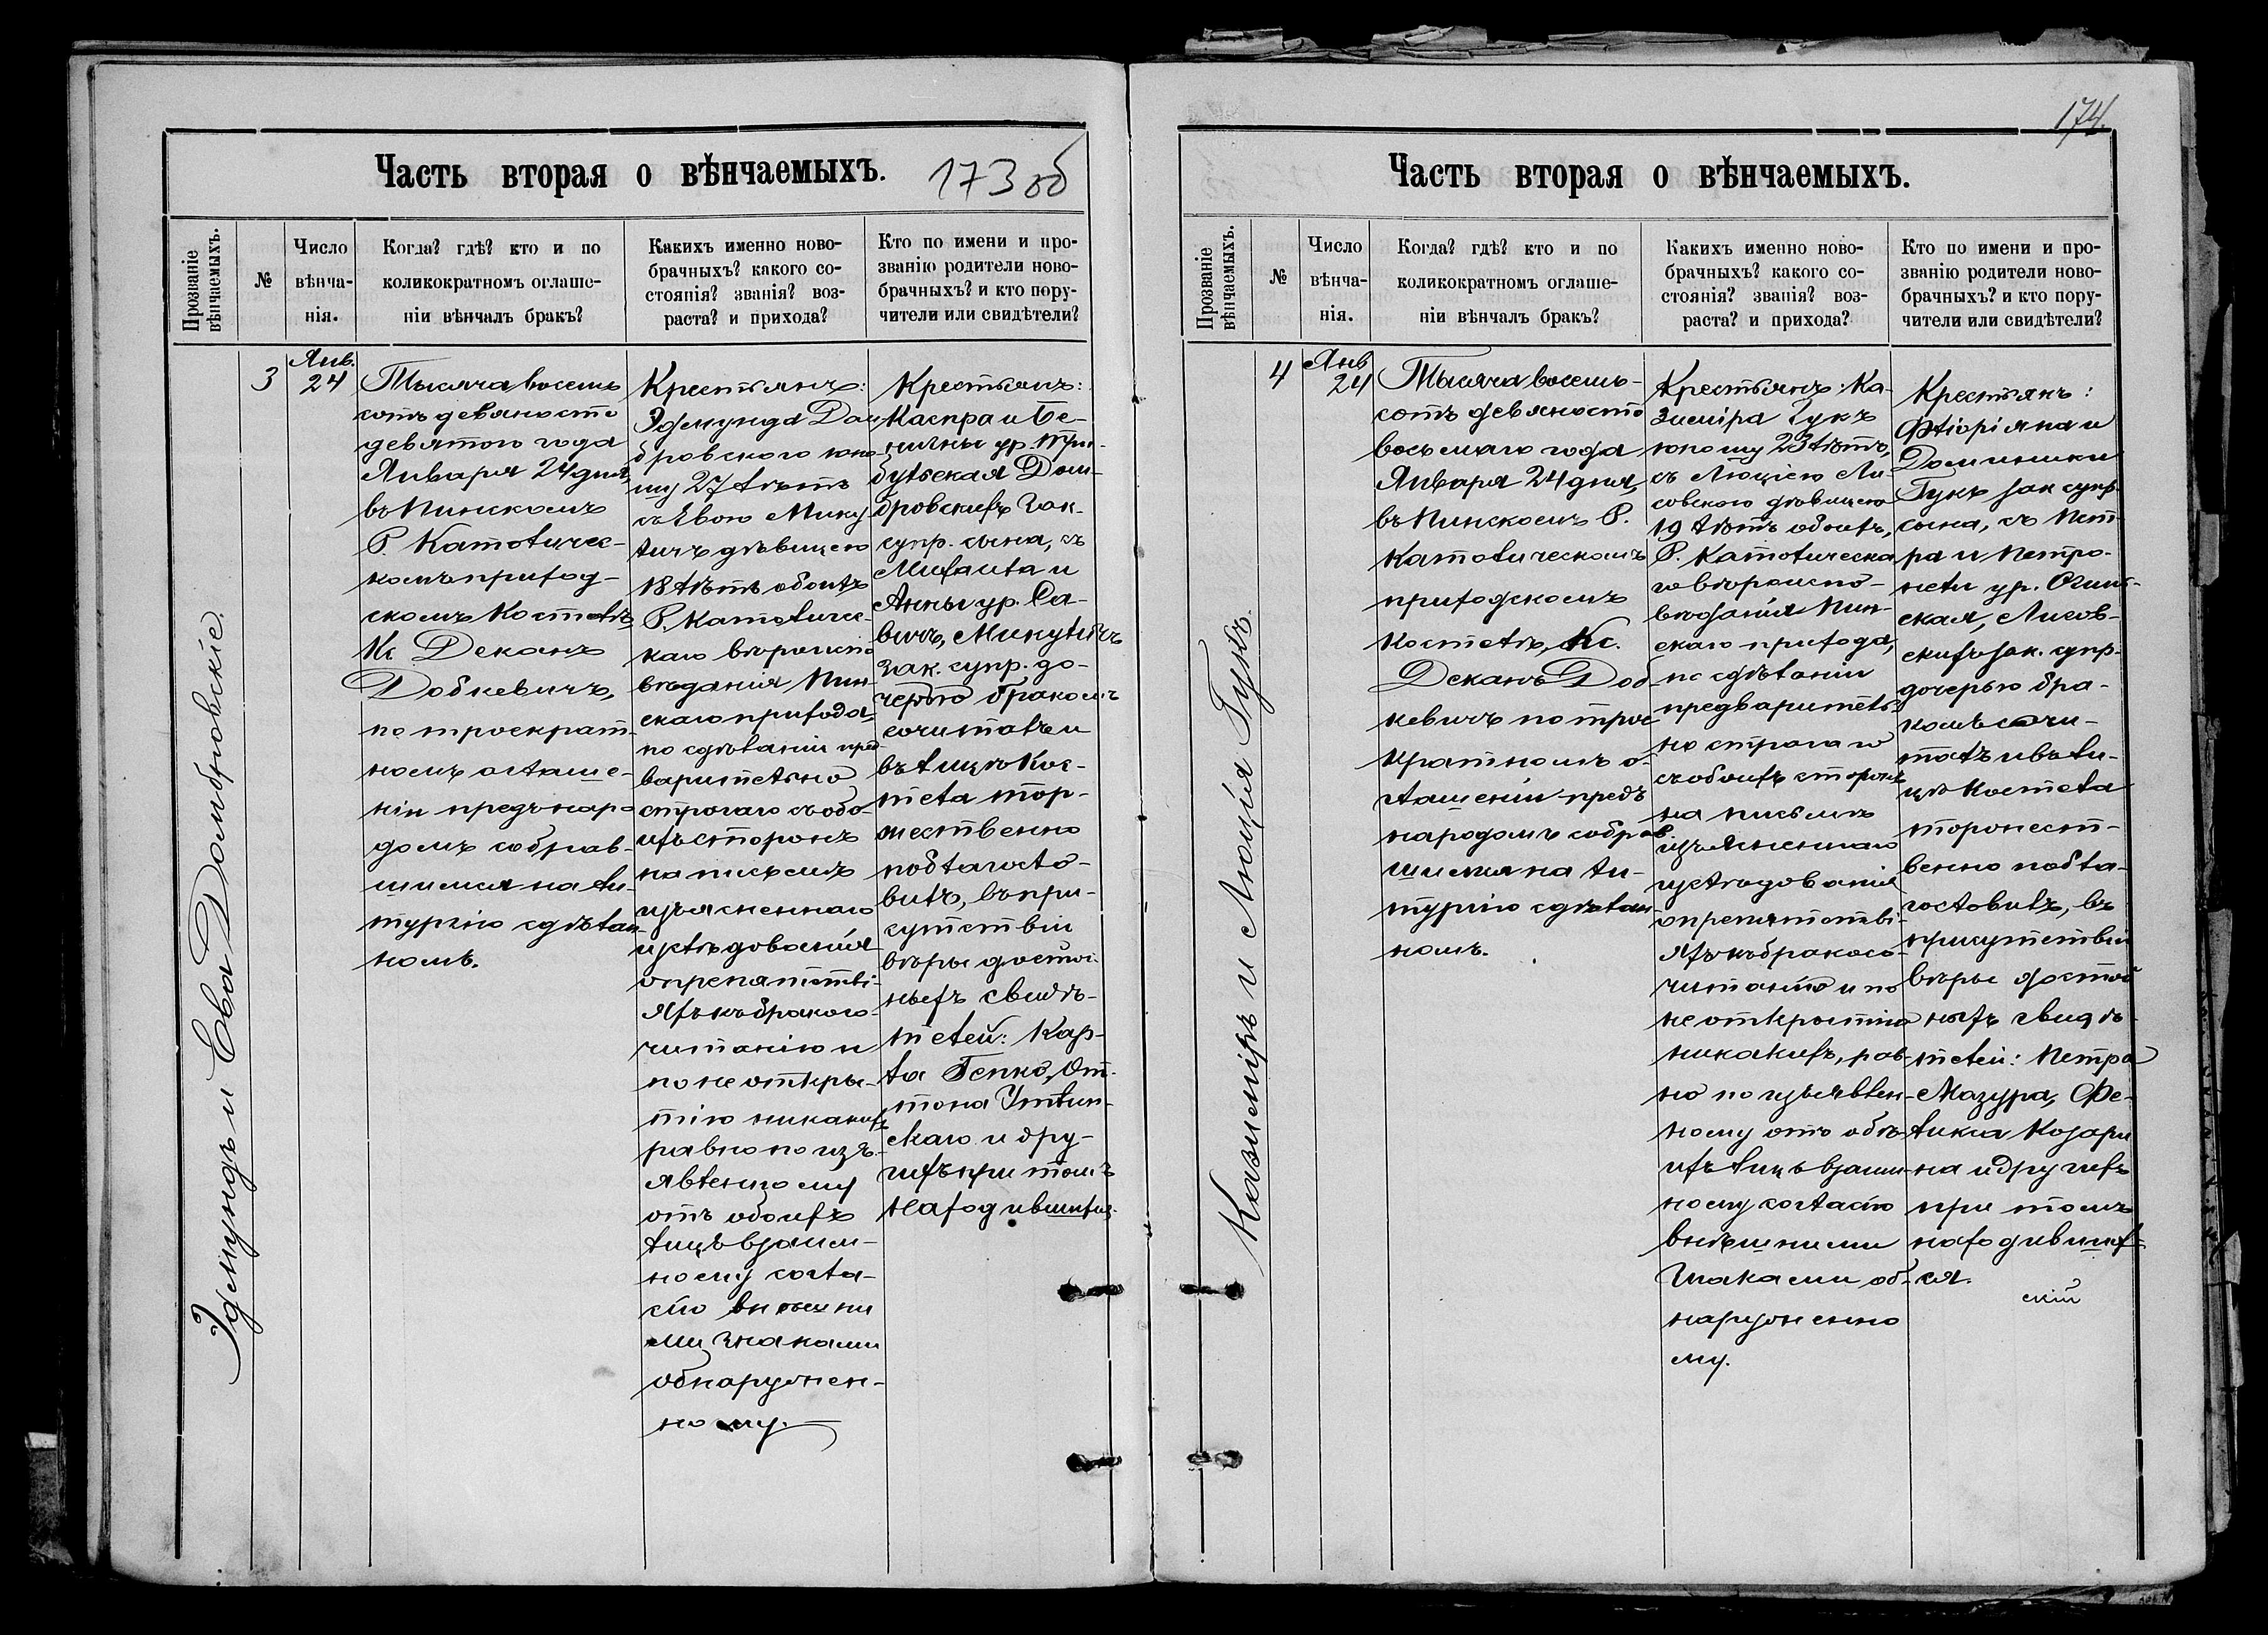 Часть вторая о вѣнчаемыхъ.
173 об
Прозваніе вѣнчаемыхъ.
№
Число вѣнча-
нія.
Когда? гдѣ? кто и по
коликократномъ оглаше-
ніи вѣнчалъ бракъ?
Какихъ именно ново-
брачныхъ? какого со-
стоянія? званія? воз-
раста? и прихода?
Кто по имени и про-
званію родители ново-
брачныхъ? и кто пору-
чители или свидѣтели?
Эдмундъ и Ева Домбровскіе.
3
Янв.
24
Тысяча восемь
сотъ девяносто
девятого года
Января 24 дня,
въ Пинскомъ
Р. Католичес-
комъ приход-
скомъ Костелѣ
Кс Деканъ
Добкевичъ,
по троекрат-
номъ оглаше-
ніи предъ наро
домъ собрав-
шимся на ли-
тургію сдѣлан
номъ.
Крестьянъ:
Эдмунда Дом
бровского юно
шу 27 лѣтъ
съ Евою Мику
личъ дѣвицею
18 лѣтъ обоихъ
Р. Католичес-
каго вѣроиспо
вѣданія Пин-
скаго прихода,
по сдѣланіи пред
варительно
строгаго съ обо-
ихъ сторонъ
на письмѣ
изъясненнаго
изслѣдованія
о препятстві-
яхъ къ бракосо-
читанію и
по не откры-
тію никакихъ
равно по изъ-
явленному
отъ обоихъ
лицъ взаим-
ному согла-
сію внѣшни
ми знаками
обнаружен-
ному.
Крестьянъ:
Каспра и
ур. Три-
бульская Дом-
бровскихъ зак.
супр. сына, съ
Михаила и
Анны ур. Са-
вичъ, Микуличъ
зак. супр. до-
черью бракомъ
сочиталъ и
въ лицѣ Кос-
тела тор-
жественно
поблагосло-
вилъ, въ при-
сутствіи
вѣры достой-
ныхъ свидѣ-
телей: Кар-
ла
и дру-
гихъ при томъ
находившихся.
174.
Часть вторая о вѣнчаемыхъ.
Прозваніе вѣнчаемыхъ.
№
Число
вѣнча-
нія.
Когда? гдѣ? кто и по
коликократномъ оглаше-
ніи вѣнчалъ бракъ?
Какихъ именно ново-
брачныхъ? какого со-
стоянія? званія? воз-
раста? и прихода?
Кто по имени и про-
званію родители ново-
брачныхъ? и кто пору-
чители или свидѣтели?
Казиміръ и Люція Гукъ.
4
Янв
24
Тысяча восемь-
сотъ девяносто
восьмаго года
Января 24 дня,
въ Пинскомъ Р.
Католическомъ
приходскомъ
Костелѣ, Кс.
Деканъ Доб-
кевичъ по трое
кратномъ о-
глашеніи предъ
народомъ собрав
шимся на ли-
тургію сдѣлан
номъ.
Крестьянъ: Ка-
зиміра Гукъ
юношу 23 лѣтъ,
съ Люціею Ли-
совскою дѣвицею
19 лѣтъ обоихъ,
Р. Католическа
го вѣроиспо-
вѣданія Пин-
скаго прихода,
по сдѣланіи
предваритель-
но строгаго
съ обоихъ сторонъ
на письмѣ
изъясненнаго
изслѣдованія
о препятстві-
яхъ къ бракосо-
читанію и по
не открытію
никакихъ, рав-
но по изъявлен-
ному отъ обо-
ихъ лицъ взаим-
ному согласію
внѣшними
знаками об-
наруженно
му.
Крестьянъ:
Флоріяна и
Доминики
Гукъ зак супр.
сына, съ Пет-
ра и Петро-
нели ур.
Лисов-
скихъ зак. супр.
дочерью бра-
комъ сочи-
талъ и въ ли-
цѣ Костела
торжест-
венно побла-
гословилъ, въ
присутствіи
вѣры достой
ныхъ свидѣ-
телей: Петра
Мазура, Фе-
ликса Козари
на и другихъ
при томъ
находивших-
ся.
скій